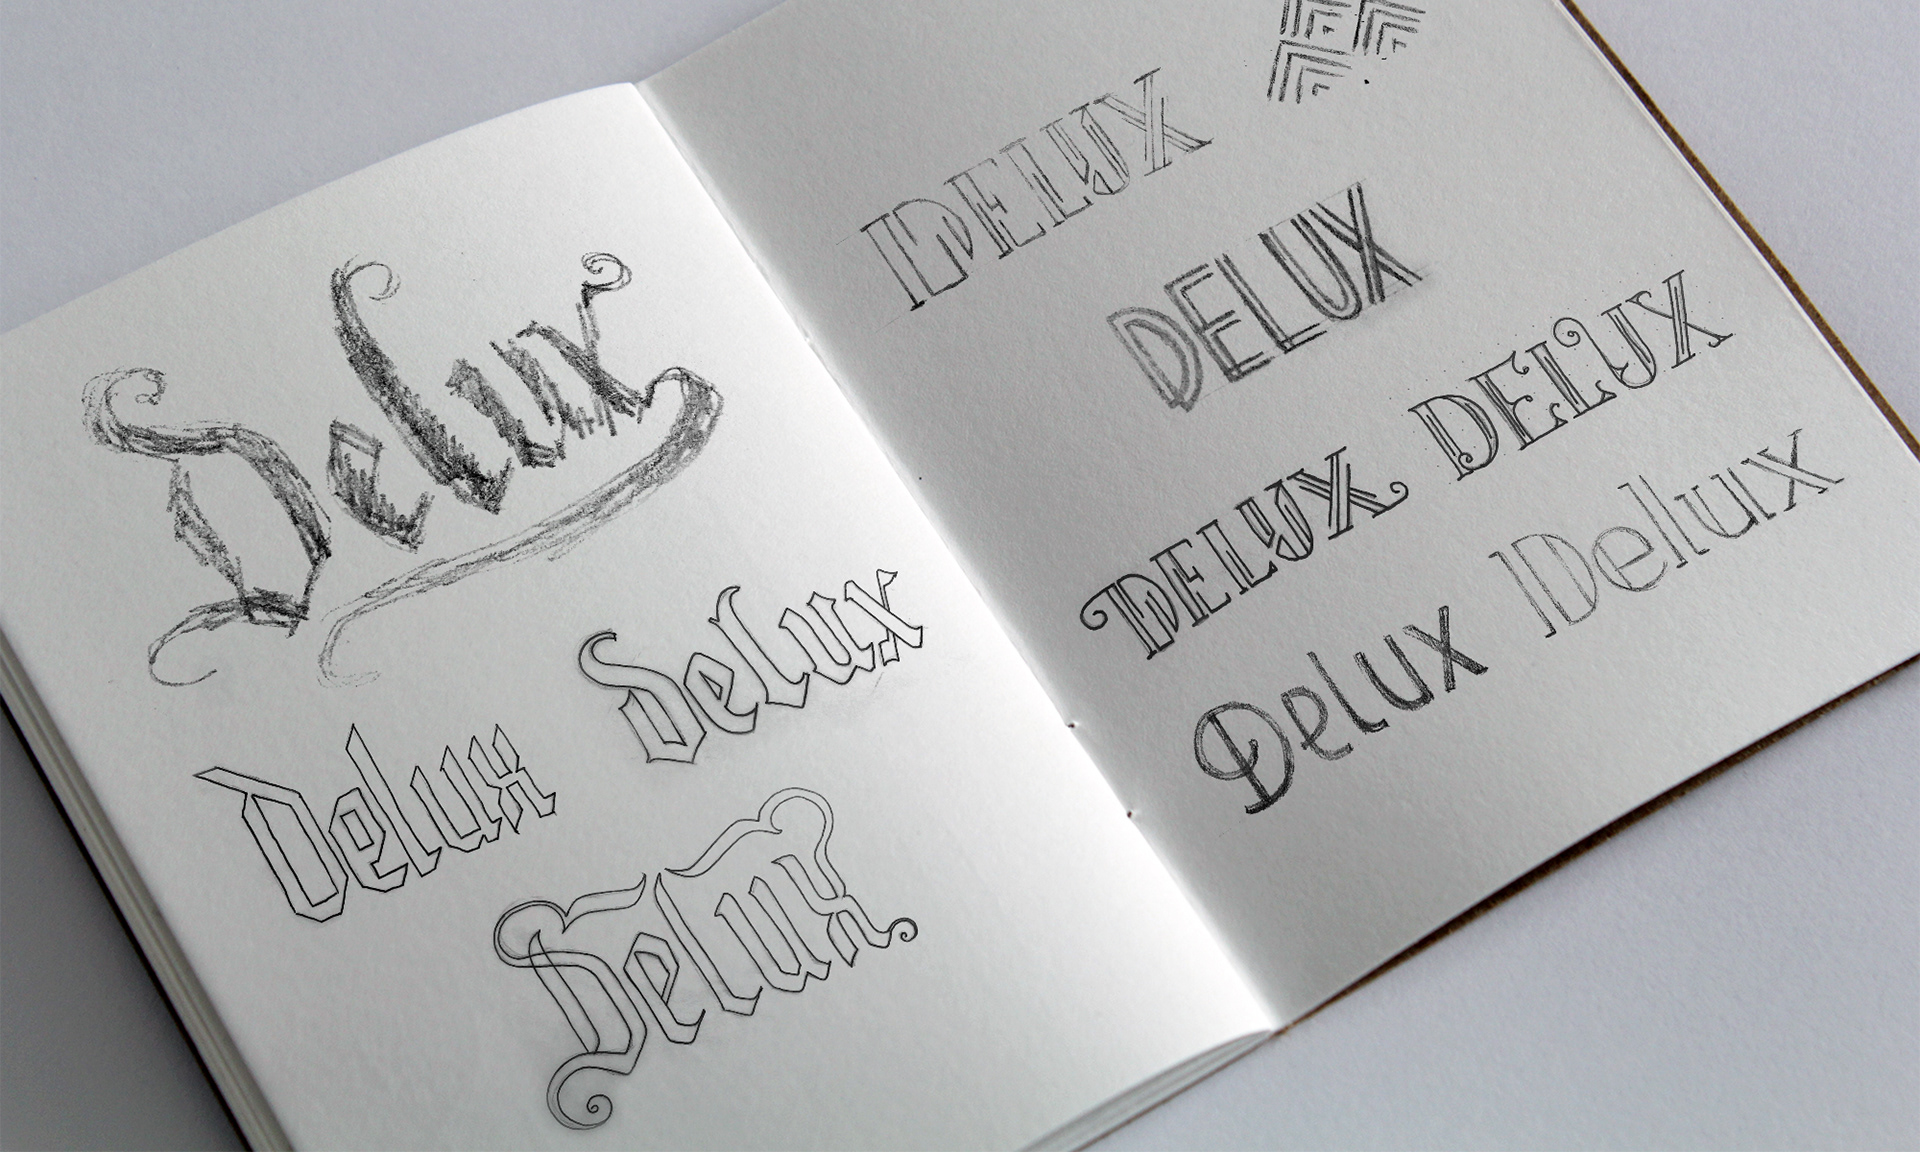 Delux
Delux
Delux
Delux
DELUX
DELUX
DELUX
DELUX
Delux
Delux